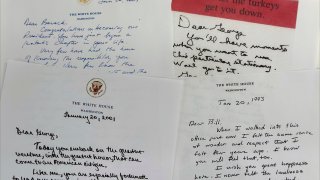 THE WHITE HOUSE
WASHINGTON
Dear Barack,
Congratulations on becoming our
President. You have just begun a
fantastic chapter in your life.
Very few have had the honor of
knowing the responsibility you
get you down.
Dear George,
You'll have moments
when you want to use
this particular stationery.
Well, go to it.
THE WHITE HOUSE
WASHINGTON
January 20, 2001
Dear George,
Today you embark on the greatest
venture, with the greatest honor, that can
come to an American citizen.
Like me, you are especially fortunate
to lead
THE WHITE HOUSE
WASHINGTON
Jan 20, 1993
Dear Bill,
When I walked into this
office just now I felt the same sense
of wonder and respect that I
felt four years ago. I know
you will feel that, too.
I wish you great happiness
here. I never felt the loneliness